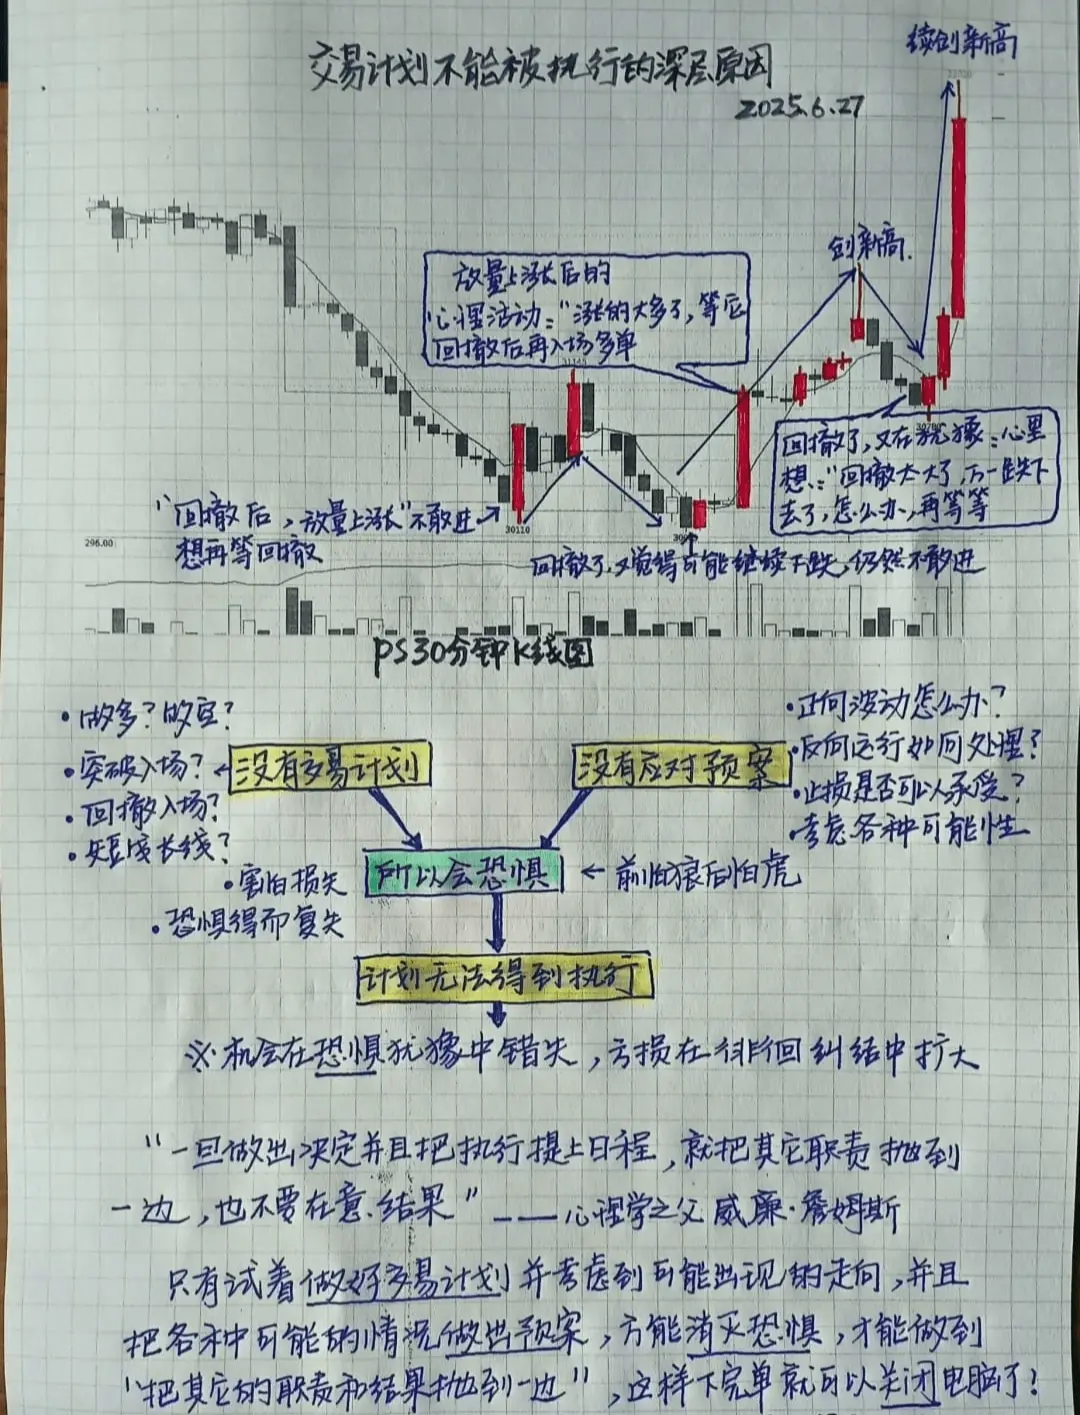 续创新高
交易计划不能被执行的深层原因
2025.6.27
创新高.
放量上涨后的
心理活动:"涨的太多了,等它
回撤后再入场多单
回撤了,又在犹豫:心里
想:"回撤太大了,万一跌下
去了,怎么办,再等等
"回撤后,放量上涨"不敢进
想再等回撤
30110
296.00
回撤了,又觉得可能继续下跌,仍然不敢进
PS30分钟K线图
·做多?做空?
·突破入场?
·回撤入场?
·短线长线?
没有交易计划
没有应对预案
·正向波动怎么办?
·反向运行如何处理?
·止损是否可以承受?
·考虑各种可能性
·害怕损失
·恐惧得而复失
所以会恐惧
前怕狼后怕虎
计划无法得到执行
※机会在恐惧犹豫中错失,亏损在徘徊纠结中扩大
"一旦做出决定并且把执行提上日程,就把其它职责抛到
一边,也不要在意.结果"——心理学之父威廉·詹姆斯
只有试着做好交易计划并考虑到可能出现的走向,并且
把各种可能的情况做出预案,方能消灭恐惧,才能做到
"把其它的职责和结果抛到一边",这样下完单就可以关闭电脑了!